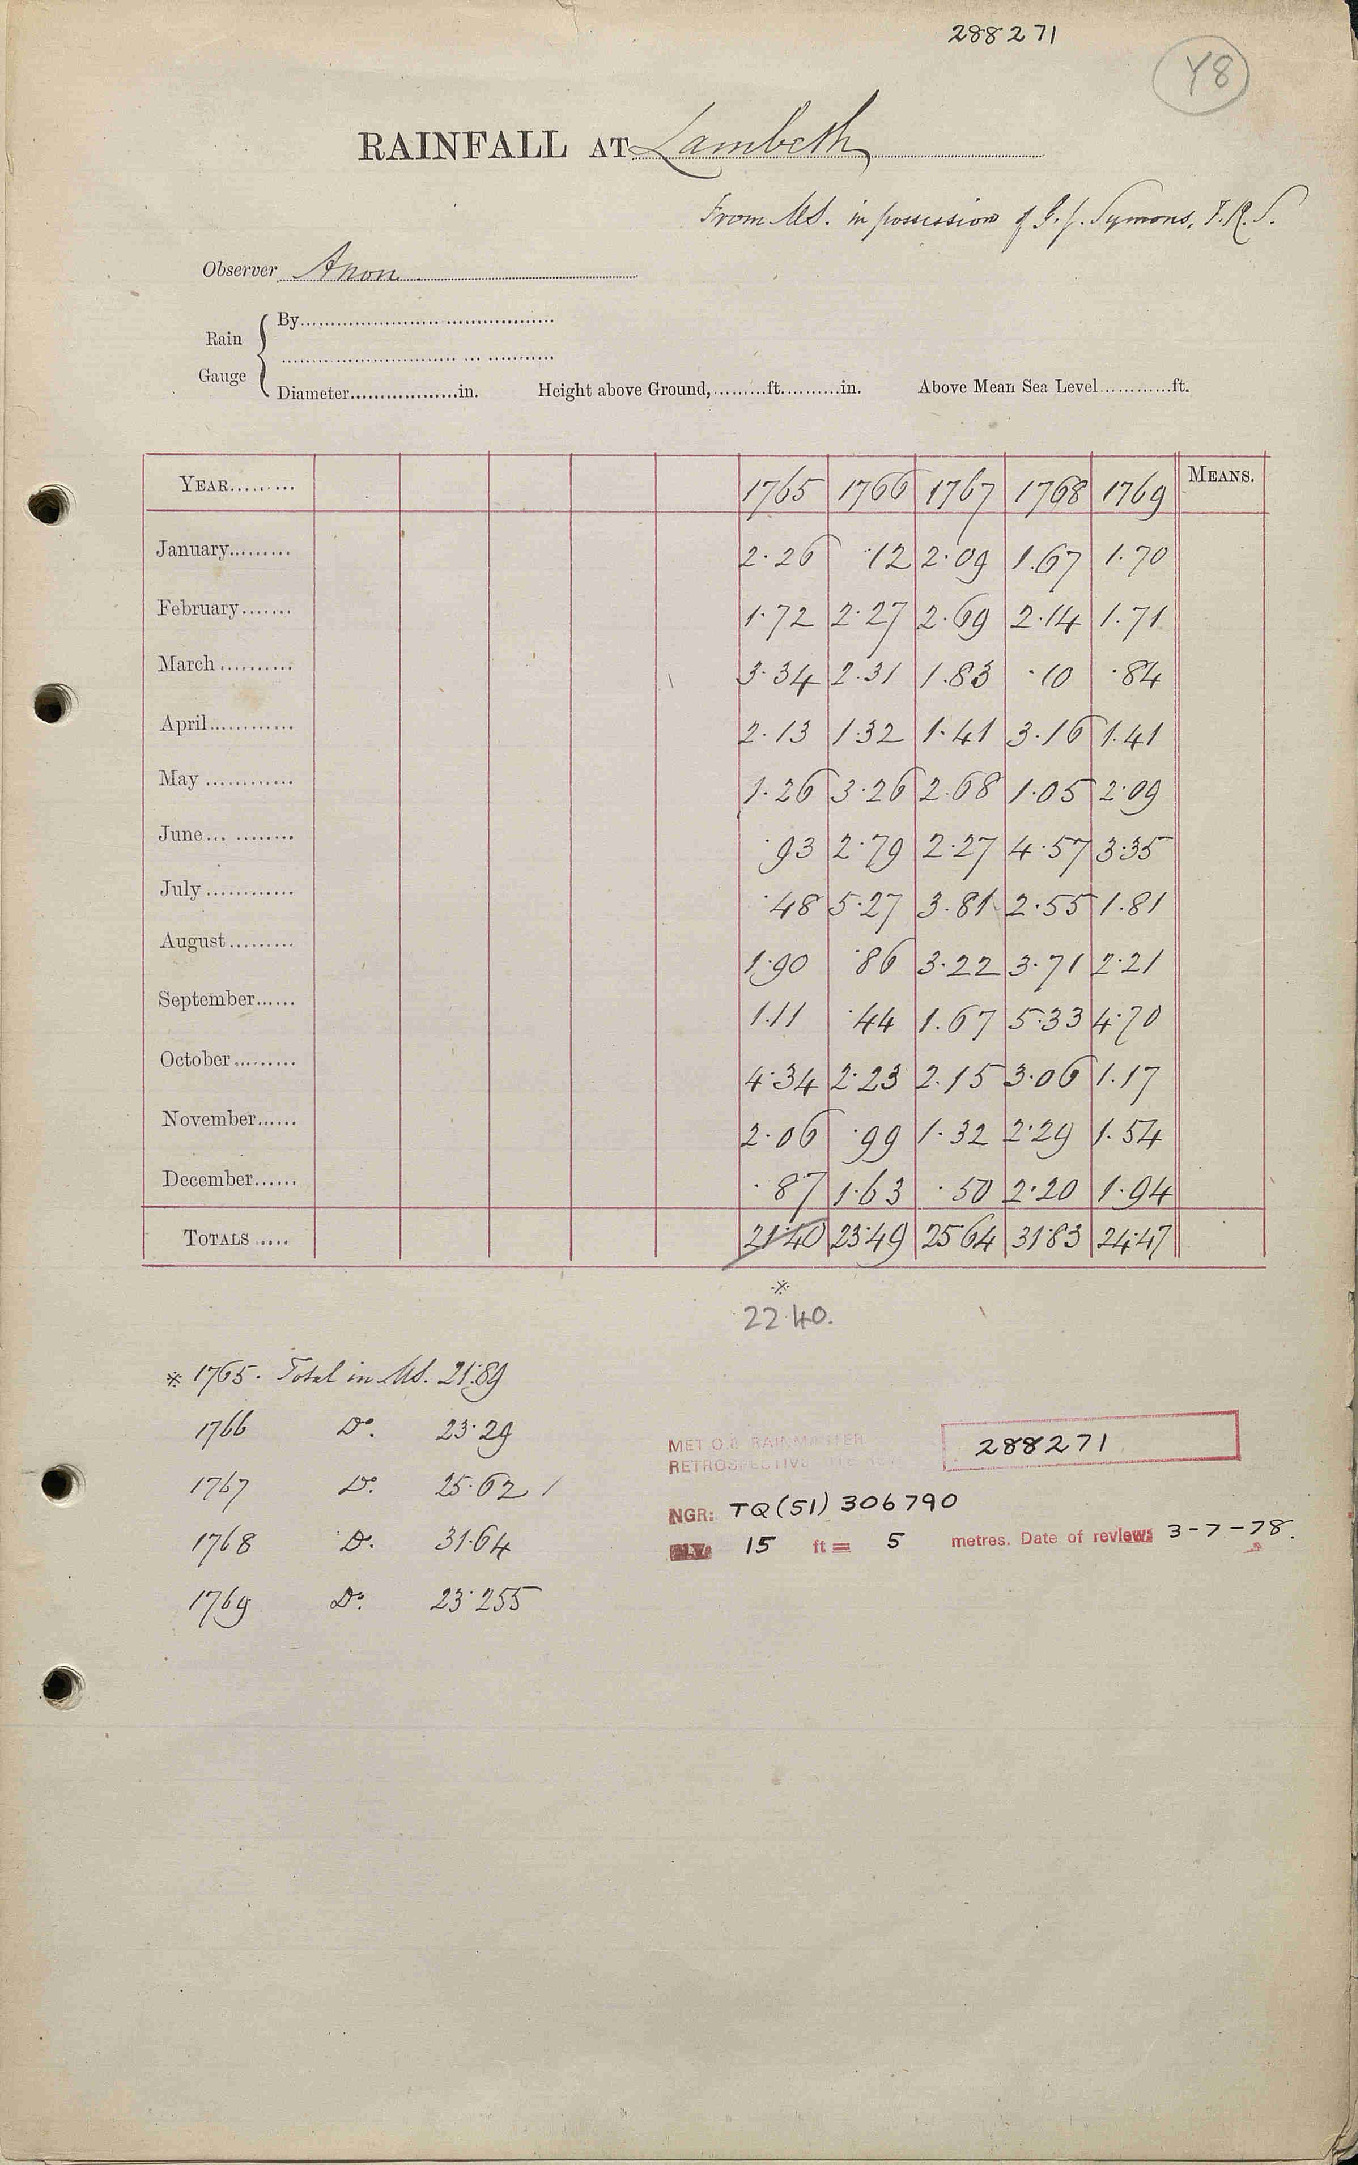 288271
Y8
RAINFALL AT Lambeth
From MS. in possession of G. J. Symons, F.R.S.
Observer Anon
Rain Gauge
By
Diameter in. Height above Ground, ft. in. Above Mean Sea Level ft.
YEAR 1765 1766 1767 1768 1769 MEANS.
January 2.26 .12 2.09 1.67 1.70
February 1.72 2.27 2.69 2.14 1.71
March 3.34 2.31 1.83 .10 .84
April 2.13 1.32 1.41 3.16 1.41
May 1.26 3.26 2.68 1.05 2.09
June .93 2.79 2.27 4.57 3.35
July .48 5.27 3.81 2.55 1.81
August 1.90 .86 3.22 3.71 2.21
September 1.11 .44 1.67 5.33 4.70
October 4.34 2.23 2.15 3.06 1.17
November 2.06 .99 1.32 2.29 1.54
December .87 1.63 .50 2.20 1.94
TOTALS 21.40 23.49 25.64 31.83 24.47
*
22.40.
* 1765. Total in MS. 21.89
1766 Do. 23.29
1767 Do. 25.62
1768 Do. 31.64
1769 Do. 23.255
MET O.8 RAINMASTER
RETROSPECTIVE
288271
NGR: TQ(51) 306790
ELV: 15 ft = 5 metres. Date of review: 3-7-78.